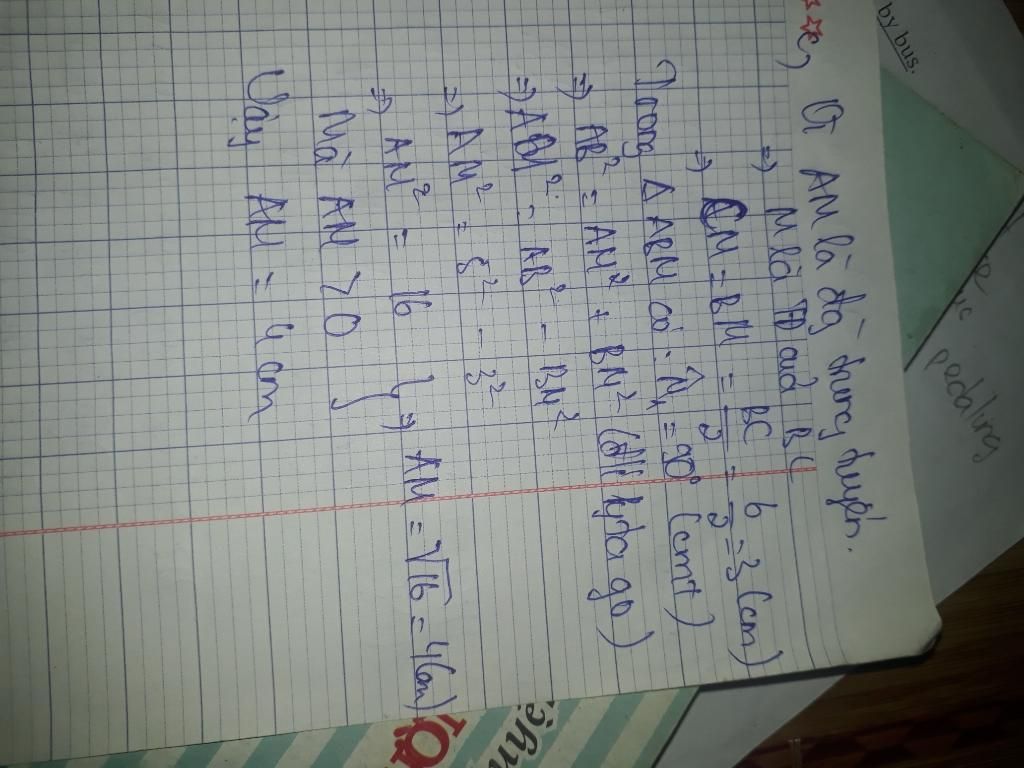 c, Vì AM là đg trung tuyến.
=> M là TĐ của BC
=> CM = BM = BC/2 = 6/2 = 3 (cm)
Trong Δ ABM có: M̂₁ = 90° (cmt)
=> AB² = AM² + BM² (ĐL Pytago)
=> AM² = AB² - BM²
=> AM² = 5² - 3²
=> AM² = 16
Mà AM > 0 } => AM = √16 = 4 (cm)
Vậy AM = 4 cm
by bus.
pedaling